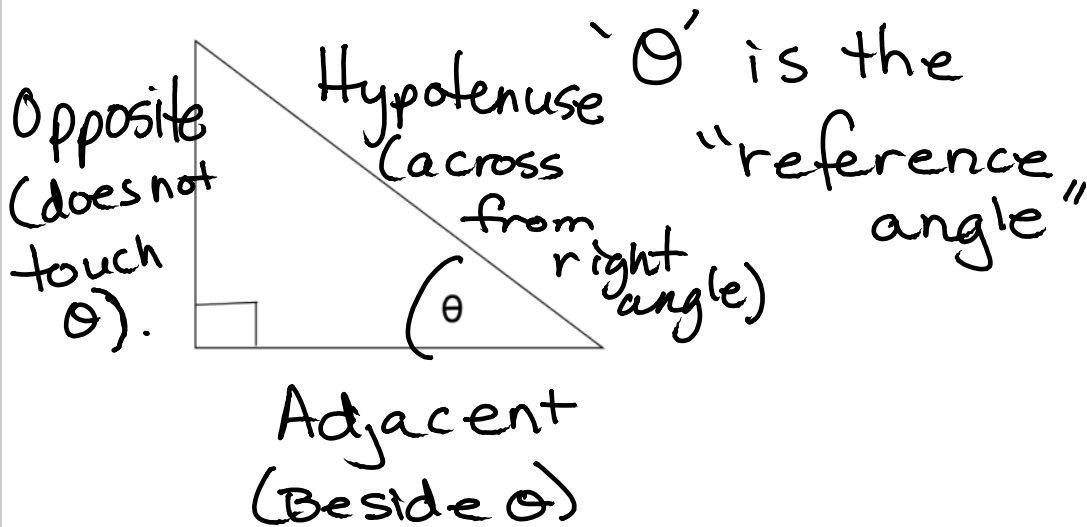 Opposite
(does not
touch
θ).
Hypotenuse
(across
from
right
angle)
'θ' is the
"reference
angle"
θ
Adjacent
(Beside θ)